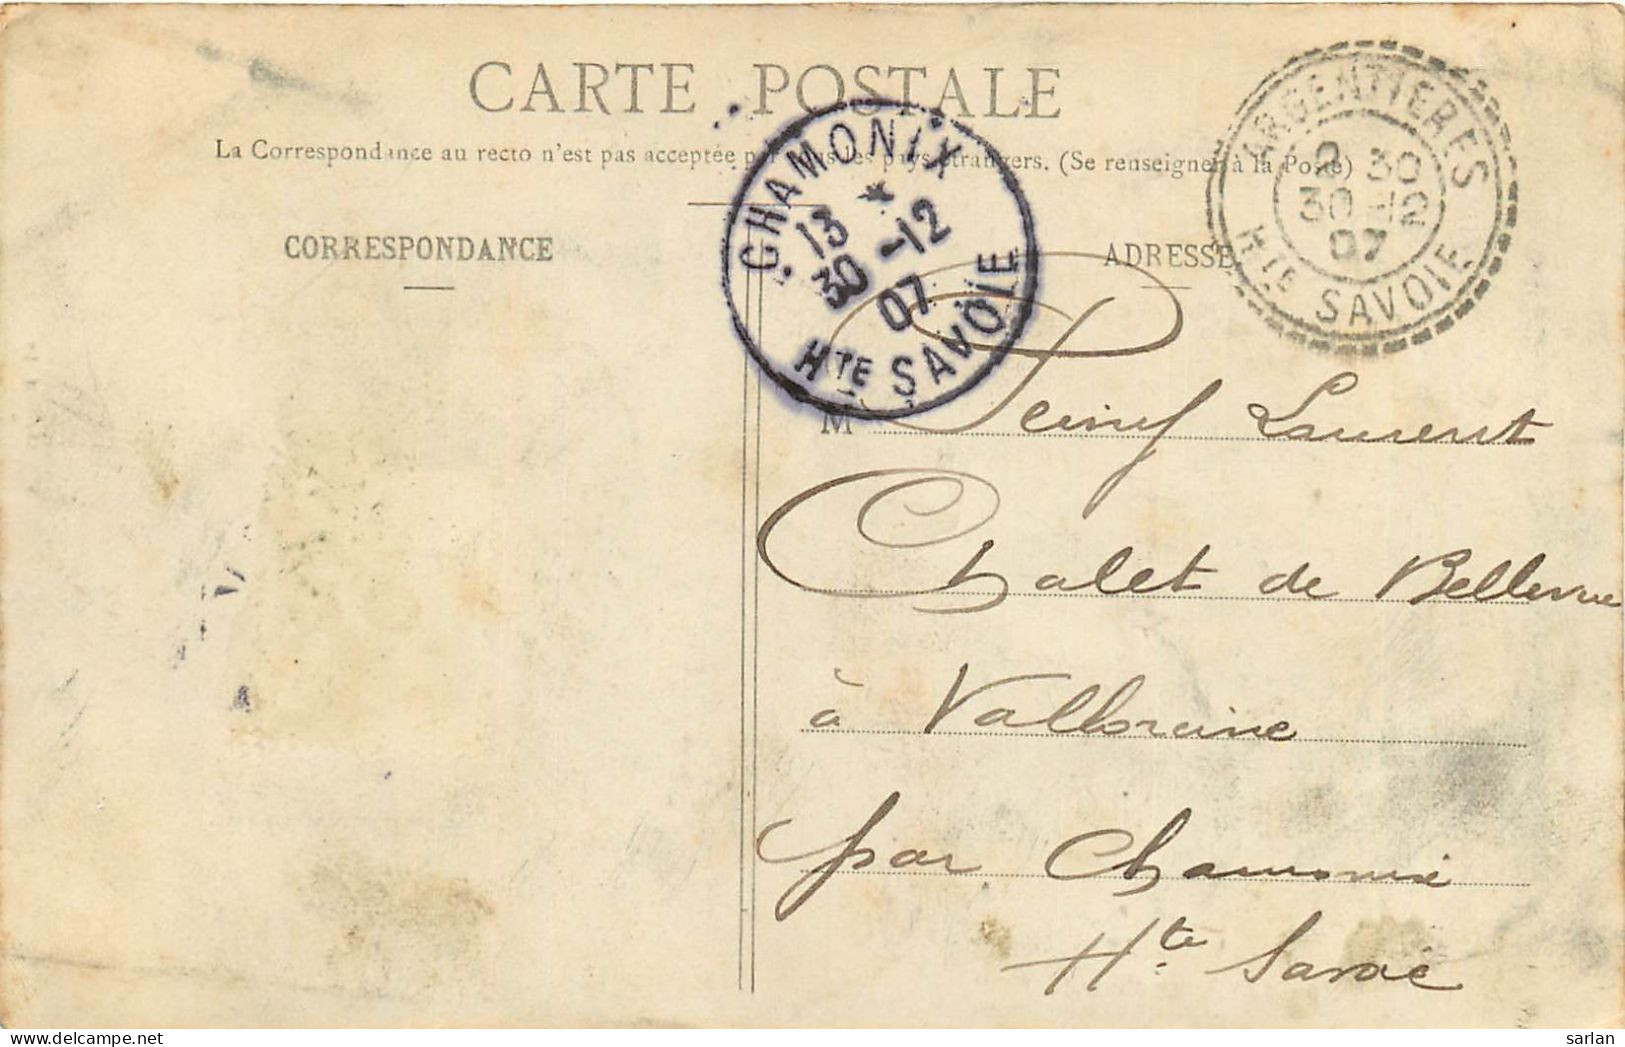 CARTE POSTALE
La Correspondance au recto n'est pas acceptée par tous les pays étrangers. (Se renseigner à la Poste)
CORRESPONDANCE
ADRESSE
CHAMONIX
13 *
30 -12
07
HTE SAVOIE
ARGENTIERES
9 30
30 -12
07
HTE SAVOIE
M Laurent
Chalet de Bellevue
à Vallorcine
par Chamonix
Hte Savoie
Sarlan
www.delcampe.net